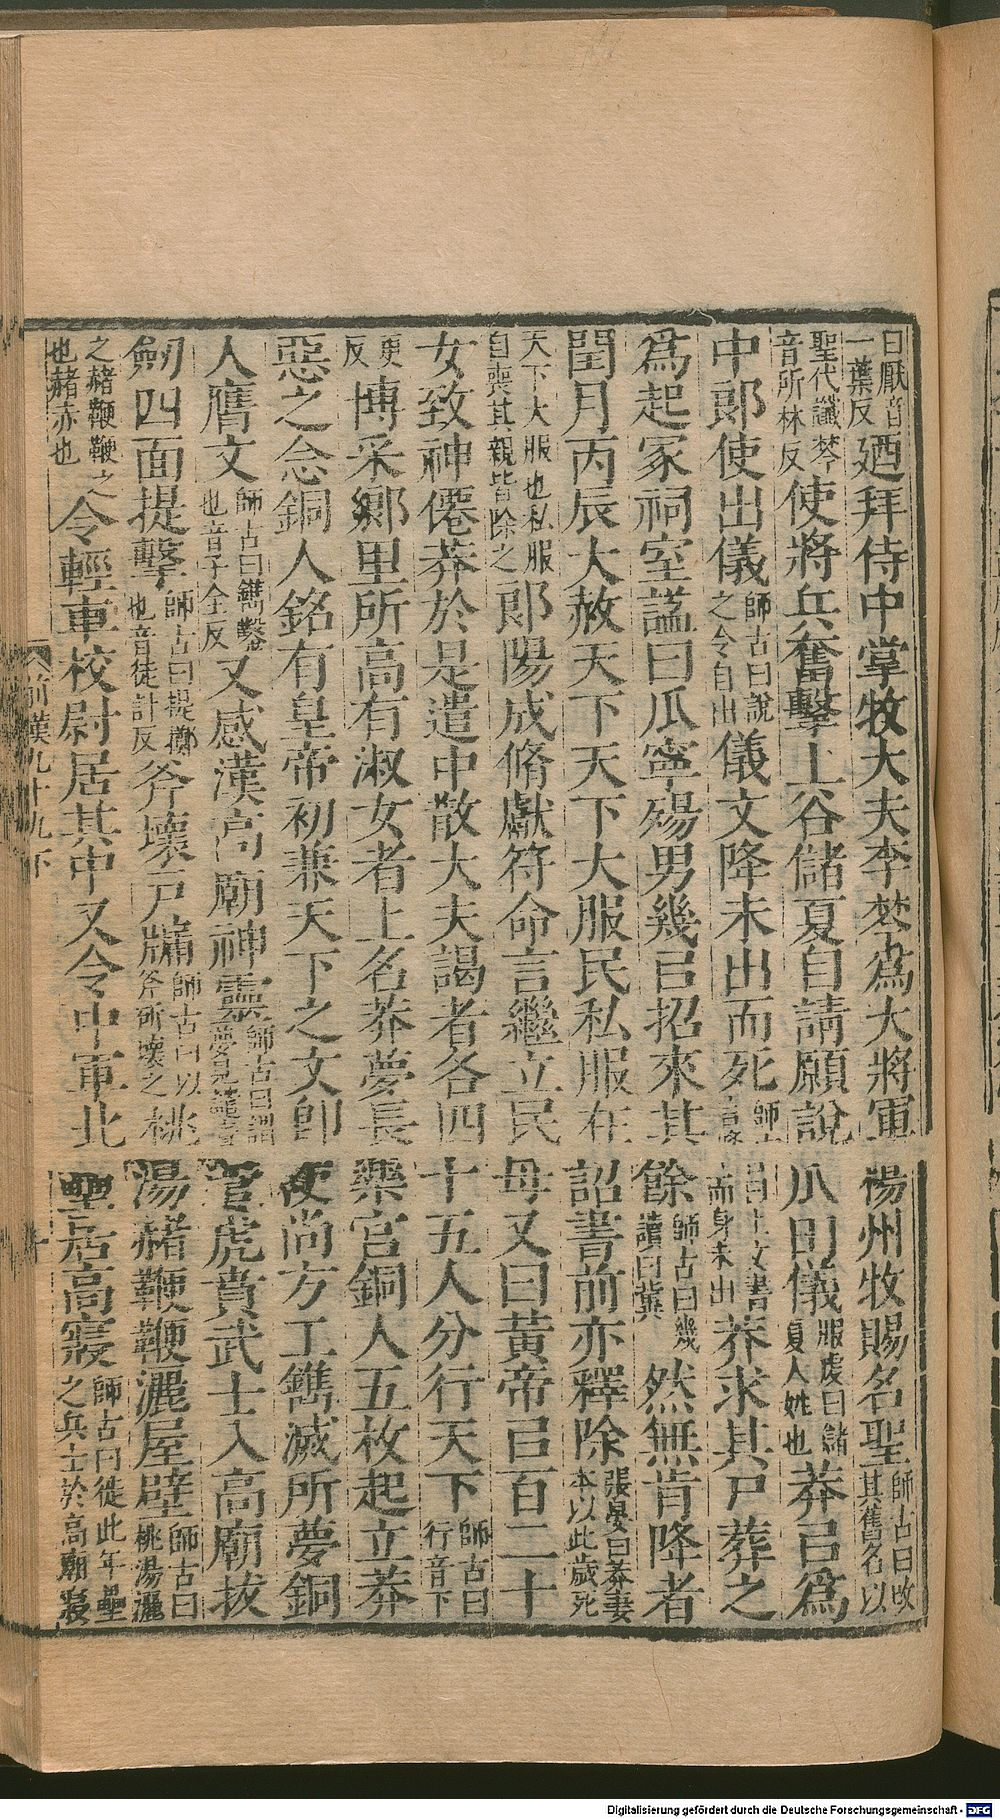 曰厭音一葉反廼拜侍中掌牧大夫李棽爲大將軍楊州牧賜名聖師古曰改其舊名以
聖代讖棽音所林反使將兵奮擊上谷儲夏自請願說瓜田儀服虔曰儲夏人姓也莽㠯爲
中郞使出儀師古曰說之令自出儀文降未出而死師古曰上文書而身未出莽求其尸葬之
爲起冢祠室謚曰瓜寧殤男幾㠯招來其餘師古曰幾讀曰冀然無肯降者
閏月丙辰大赦天下天下大服民私服在詔書前亦釋除張晏曰莽妻本以此歲死
天下大服也私服自喪其親皆除之郞陽成脩獻符命言繼立民母又曰黃帝㠯百二十
女致神僊莽於是遣中散大夫謁者各四十五人分行天下師古曰行音下
更反博采鄕里所高有淑女者上名莽夢長樂宮銅人五枚起立莽
惡之念銅人銘有皇帝初兼天下之文卽使尚方工鐫滅所夢銅
人膺文師古曰鐫鑿也音子全反又感漢高廟神靈師古曰謂夢見譴責遣虎賁武士入高廟拔
劒四面提擊師古曰提擲也音徒計反斧壞戶牖師古曰以斧斫壞之桃湯赭鞭鞭灑屋壁師古曰桃湯灑
之赭鞭鞭之也赭赤也令輕車校尉居其中又令中軍北壘居高寢師古曰徙此年壘之兵士於高廟寢
前漢九十九下
Digitalisierung gefördert durch die Deutsche Forschungsgemeinschaft - DFG